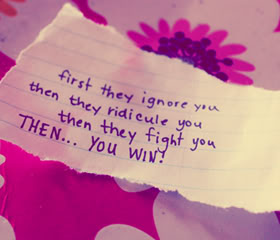 first they ignore you
then they ridicule you
then they fight you
THEN... YOU WIN!